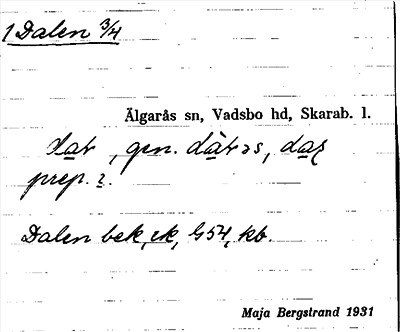 1 Dalen 3/4
Älgarås sn, Vadsbo hd, Skarab. l.
gen.
prep. 2.
Dalen bek, ek, G54, kb.
Maja Bergstrand 1931